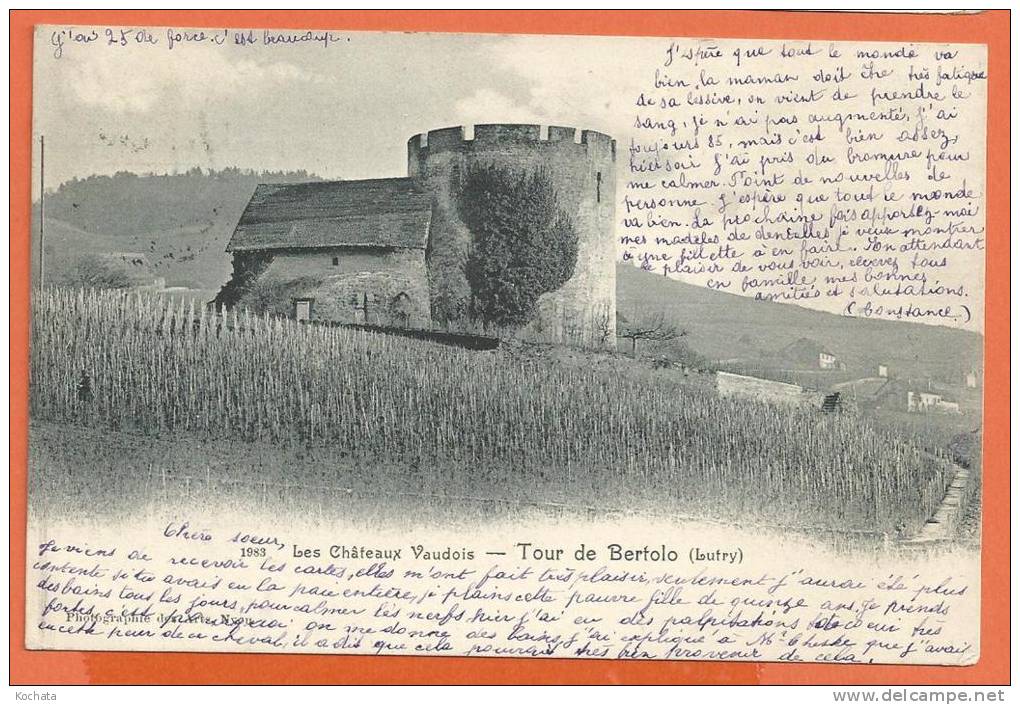 j'ai 25 de force. c'est beaucoup.
J'espère que tout le monde va
bien, la maman doit être très fatiguée
de sa lessive, on vient de prendre le
sang, je n'ai pas augmenté, j'ai
toujours 85, mais c'est bien assez,
hier soir j'ai pris du bromure pour
me calmer. Point de nouvelles de
personne. J'espère que tout le monde
va bien. La prochaine fois apportez-moi
mes modèles de dentelles je veux montrer
à une fillette à en faire. En attendant
le plaisir de vous voir, recevez tous
en famille, mes bonnes
amitiés et salutations.
(Constance)
Chère soeur,
1983 Les Châteaux Vaudois — Tour de Bertolo (Lutry)
Je viens de recevoir les cartes, elles m'ont fait très plaisir, seulement j'aurai été plus
contente si tu avais eu la paie entière, je plains cette pauvre fille de quinze ans. Je prends
des bains tous les jours, pour calmer les nerfs, hier j'ai eu des palpitations de coeur très
fortes, c'est pourquoi on me donne des bains, j'ai expliqué à Mr. que j'avais
Photographie des Arts, Nyon
eu cette peur de ce cheval, il a dit que cela pouvait très bien provenir de cela.
Kochata
www.delcampe.net